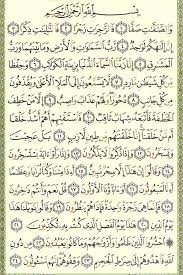 بِسْمِ ٱللَّهِ ٱلرَّحْمَٰنِ ٱلرَّحِيمِ
وَٱلصَّٰٓفَّٰتِ صَفًّا ١ فَٱلزَّٰجِرَٰتِ زَجْرًا ٢ فَٱلتَّٰلِيَٰتِ ذِكْرًا ٣
إِنَّ إِلَٰهَكُمْ لَوَٰحِدٌ ٤ رَّبُّ ٱلسَّمَٰوَٰتِ وَٱلْأَرْضِ وَمَا بَيْنَهُمَا وَرَبُّ
ٱلْمَشَٰرِقِ ٥ إِنَّا زَيَّنَّا ٱلسَّمَآءَ ٱلدُّنْيَا بِزِينَةٍ ٱلْكَوَاكِبِ ٦ وَحِفْظًا
مِّن كُلِّ شَيْطَٰنٍ مَّارِدٍ ٧ لَّا يَسَّمَّعُونَ إِلَى ٱلْمَلَإِ ٱلْأَعْلَىٰ وَيُقْذَفُونَ
مِن كُلِّ جَانِبٍ ٨ دُحُورًا وَلَهُمْ عَذَابٌ وَاصِبٌ ٩ إِلَّا مَنْ خَطِفَ
ٱلْخَطْفَةَ فَأَتْبَعَهُۥ شِهَابٌ ثَاقِبٌ ١٠ فَٱسْتَفْتِهِمْ أَهُمْ أَشَدُّ خَلْقًا
أَم مَّنْ خَلَقْنَآ إِنَّا خَلَقْنَٰهُم مِّن طِينٍ لَّازِبٍۭ ١١ بَلْ عَجِبْتَ
وَيَسْخَرُونَ ١٢ وَإِذَا ذُكِّرُوا۟ لَا يَذْكُرُونَ ١٣ وَإِذَا رَأَوْا۟ ءَايَةً يَسْتَسْخِرُونَ ١٤
وَقَالُوٓا۟ إِنْ هَٰذَآ إِلَّا سِحْرٌ مُّبِينٌ ١٥ أَءِذَا مِتْنَا وَكُنَّا تُرَابًا وَعِظَٰمًا أَءِنَّا
لَمَبْعُوثُونَ ١٦ أَوَءَابَآؤُنَا ٱلْأَوَّلُونَ ١٧ قُلْ نَعَمْ وَأَنتُمْ دَٰخِرُونَ ١٨
فَإِنَّمَا هِىَ زَجْرَةٌ وَٰحِدَةٌ فَإِذَا هُمْ يَنظُرُونَ ١٩ وَقَالُوا۟ يَٰوَيْلَنَا هَٰذَا
يَوْمُ ٱلدِّينِ ٢٠ هَٰذَا يَوْمُ ٱلْفَصْلِ ٱلَّذِى كُنتُم بِهِۦ تُكَذِّبُونَ ٢١
۞ ٱحْشُرُوا۟ ٱلَّذِينَ ظَلَمُوا۟ وَأَزْوَٰجَهُمْ وَمَا كَانُوا۟ يَعْبُدُونَ ٢٢ مِن
دُونِ ٱللَّهِ فَٱهْدُوهُمْ إِلَىٰ صِرَٰطِ ٱلْجَحِيمِ ٢٣ وَقِفُوهُمْ إِنَّهُم مَّسْـُٔولُونَ ٢٤